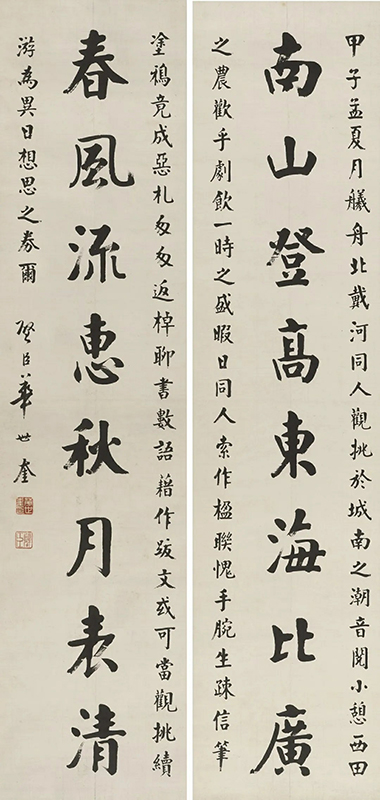 甲子孟夏月艤舟北戴河同人觀挑於城南之潮音閣小憩西田
南山登高東海比廣
之農歡乎劇飲一時之盛暇日同人索作楹聯愧手腕生疎信筆
塗鴉竟成惡札匆匆返棹聊書數語藉作跋文或可當觀挑續
春風流惠秋月表清
游為異日想思之券爾 璧臣華世奎